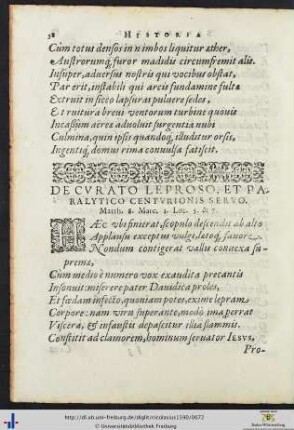 38 HISTORIA
Cùm totus densos in nimbos liquitur æther,
Austrorumq; furor madidis circumfremit alis.
Insuper, aduersus nostris qui vocibus obstat,
Par erit, instabili qui arcis fundamine fulta
Extruit in sicco lapsuras puluere sedes,
Et ruitura breui ventorum turbine quouis
Incassùm aërea aduoluit surgentia nubi
Culmina, quin ipse quandoq; illuditur orsis,
Ingentiq; domus rima conuulsa fatiscit.
DE CVRATO LEPROSO, ET PA-
RALYTICO CENTVRIONIS SERVO.
Matth. 8. Marc. 1. Luc. 5. & 7.
HÆc vbi finierat, scopulo descendit ab alto
Applausu exceptus vulgi, lætoq; fauore
Nondum contigerat vallis conuexa su-
prema,
Cùm medio è numero vox exaudita precantis
Insonuit: miserere pater Dauidica proles,
Et fœdam infecto, quoniam potes, exime lepram
Corpore: nam vim superante, modò ima perrat
Viscera, & infaustis depascitur ilia flammis.
Constitit ad clamorem, hominum seruator IESVS,
Pro-
http://dl.ub.uni-freiburg.de/diglit/nicolosius1590/0072
© Universitätsbibliothek Freiburg